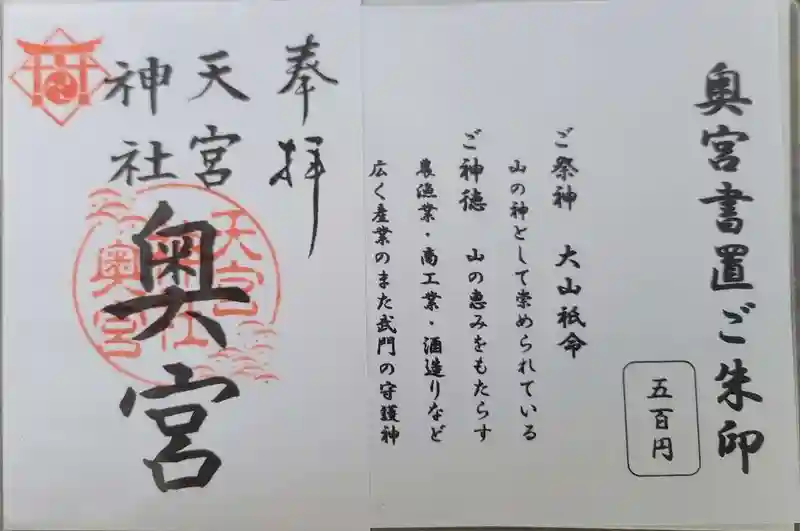 奥宮書置ご朱印
五百円
ご祭神 大山祇命
山の神として崇められている
ご神徳 山の恵みをもたらす
農漁業・商工業・酒造りなど
広く産業のまた武門の守護神
奉拝
天宮
神社
奥宮
天宮
神社
奥宮